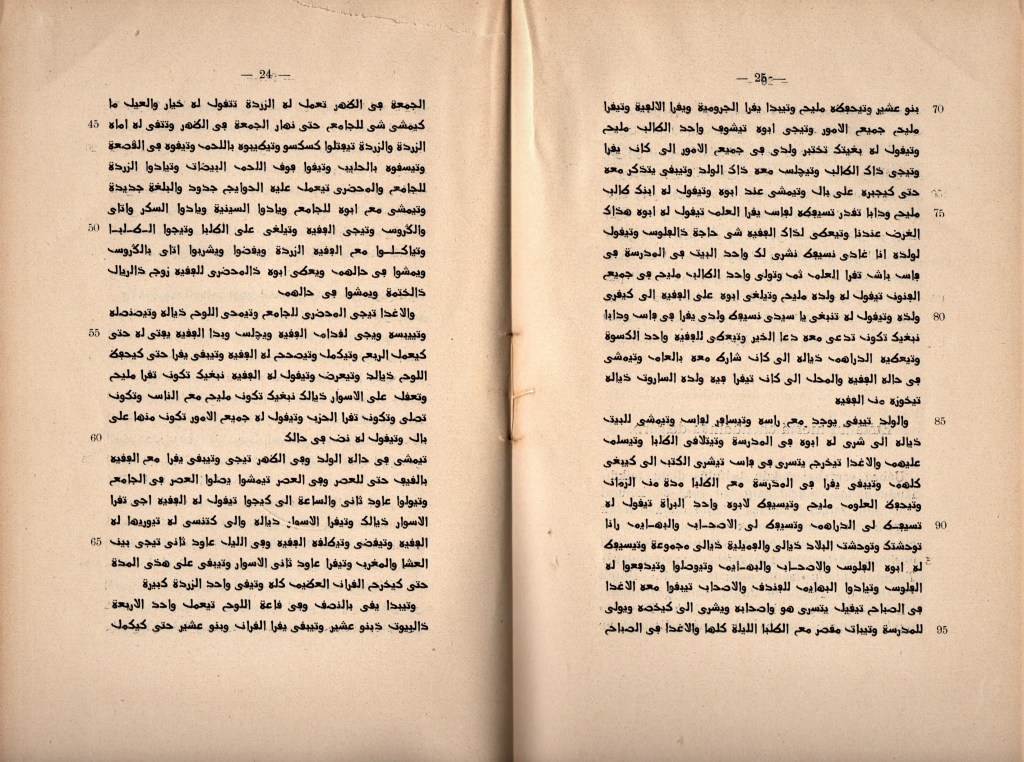 — 24 —
الجمعة في الظهر تعمل له الزردة تتقول له خيار والعيل ما
45 كيمشى شى للجامع حتى نهار الجمعة في الظهر وتتقى له اماه
الزردة والزردة تيفتلوا كسكسو وتيطيبوه باللحم وتيقوه في القصعة
وتيسقوه بالحليب وتيقوا فوق اللحم البيضات وتيادوا الزردة
للجامع والمحضرى تيعمل عليه الحوايج جدود والبلغة جديدة
وتيمشى مع ابوه للجامع ويادوا السينية ويادوا السكر واتاى
50 والكروس وتيجى الفقيه وتيلغى على الطلبا وتيجوا الـطـلبـا
وتياكـلـوا مع الفقيه الزردة ويقضوا ويشربوا اتاى بالكروس
ويمشوا في حالهم ويعطى ابوه ذالمحضرى للفقيه زوج ذالريال
ذالختمة ويمشوا في حالهم
والاغدا تيجى المحضرى للجامع وتيمحى اللوح ذياله وتيصنصله
55 وتيبيسه ويجى لقدام الفقيه ويجلس ويدا الفقيه يفتى له حتى
كيعمل الربع وتيكمل وتيصحح له الفقيه وتيبقى يقرا حتى كيحفظ
اللوح ذيالد وتيعرض وتيقول له الفقيه نبغيك تكون تقرا مليح
وتعقل على الاسوار ذيالك نبغيك تكون مليح مع الناس وتكون
تصلى وتكون تقرا الحزب وتيقول له جميع الامور تكون منها على
60 بال وتيقول له نض في حالك
تيمشى في حاله الولد وفى الظهر تيجى وتيبقى يقرا مع الفقيه
بالقيف حتى للعصر وفى العصر تيمشوا يصلوا العصر في الجامع
وتيولوا عاود ثانى والساعة الى كيجوا تيقول له الفقيه اجى تقرا
الاسوار ذيالك وتيقرا الاسوار ذياله والى كتنسى له تيوريها له
65 الفقيه وتيقضى وتيطلقه الفقيه وفى الليل عاود ثانى تيجى بين
العشا والمغرب وتيقرا عاود ثانى الاسوار وتيبقى على هذى المدة
حتى كيخرج القران العظيم كله وتيقى واحد الزردة كبيرة
وتيبدا يقى بالنصف وفى قاعة اللوح تيعمل واحد الاربعة
ذالبيوت ذبنو عشير وتيبقى يقرا القران وبنو عشير حتى كيكمل
— 25 —
70 بنو عشير وتيحفظه مليح وتيبدا يقرا الجرومية ويقرا الالفية وتيقرا
مليح جميع الامور وتيجى ابوه تيشوف واحد الطالب مليح
وتيقول له بغيتك تختبر ولدى في جميع الامور الى كان يقرا
وتيجى ذاك الطالب وتيجلس معه ذاك الولد وتيبقى يتذكر معه
حتى كيجبره على بال وتيمشى عند ابوه وتيقول له ابنك طالب
75 مليح ودابا تقدر تسيفطه لفاس يقرا العلم تيقول له ابوه هذاك
الغرض عندنا وتيعطى لذاك الفقيه شى حاجة ذالفلوس وتيقول
لولده انا غادى نسيفط نشرى لك واحد البيت في المدرسة في
فاس باش تقرا العلم ثم وتولى واحد الطالب مليح في جميع
الفنون تيقول له ولده مليح وتيلغى ابوه على الفقيه الى كيقرى
80 ولده وتيقول له تنبغى يا سيدى نسيفط ولدى يقرا في فاس ودابا
نبغيك تكون تدعى معه دعا الخير وتيعطى للفقيه واحد الكسوة
وتيعطيه الدراهم ذياله الى كان شارط معه بالعام وتيمشى
في حاله الفقيه والمحل الى كان تيقرا فيه ولده الساروت ذياله
تيحوزه من الفقيه
85 والولد تيبقى يوجد مع راسه وتيسافر لفاس وتيمشى للبيت
ذياله الى شرى له ابوه في المدرسة وتيتلاقى الطلبا وتيسلم
عليهم والاغدا تيخرج يتسرى في فاس تيشرى الكتب الى كيبغى
كلهم وتيبقى يقرا في المدرسة مع الطلبا مدة من الزمان
وتيحفظ العلوم مليح وتيسيفط لابوه واحد البراة تيقول له
90 تسيفط لى الدراهم وتسيفط لى الاصحاب والبهايم رانا
توحشتك وتوحشت البلاد ذيالى والفميلية ذيالى مجموعة وتيسيفط
له ابوه الفلوس والاصحاب والبهايم وتيوصلوا وتيدفعوا له
الفلوس وتيادوا البهايم للفندق والاصحاب تيبقوا معه الاغدا
في الصباح تيقيل يتسرى هو واصحابه ويشرى الى كيخصه ويولى
95 للمدرسة وتيبات مقصر مع الطلبا الليلة كلها والاغدا في الصباح